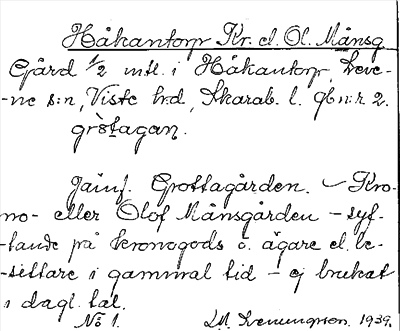 Håkantorp Kr. el. Ol. Månsg
Gård 1/2 mtl. i Håkantorp, Leve-
-ne s:n, Viste h:d, Skarab. l. gb n:r 2.
gròtagan.
Jämf. Grottagården. – Kro-
no- eller Olof Månsgården – syf-
-tande på kronogods o. ägare el. be-
-sittare i gammal tid – ej brukat
i dagl. tal.
No 1. LM Svenungsson. 1939.